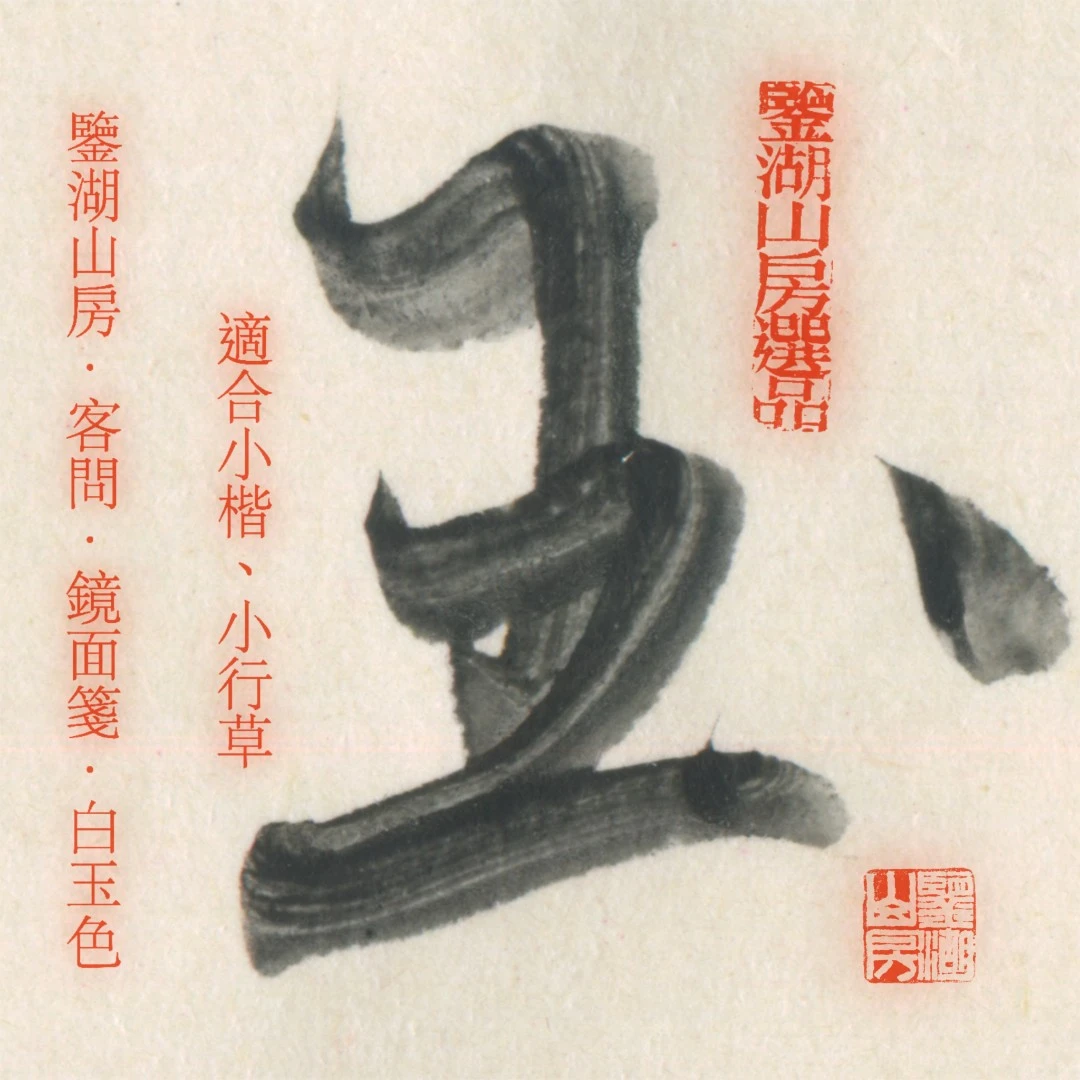 鑒湖山房選品
玉
適合小楷、小行草
鑒湖山房·客問·鏡面箋·白玉色
鑒湖山房